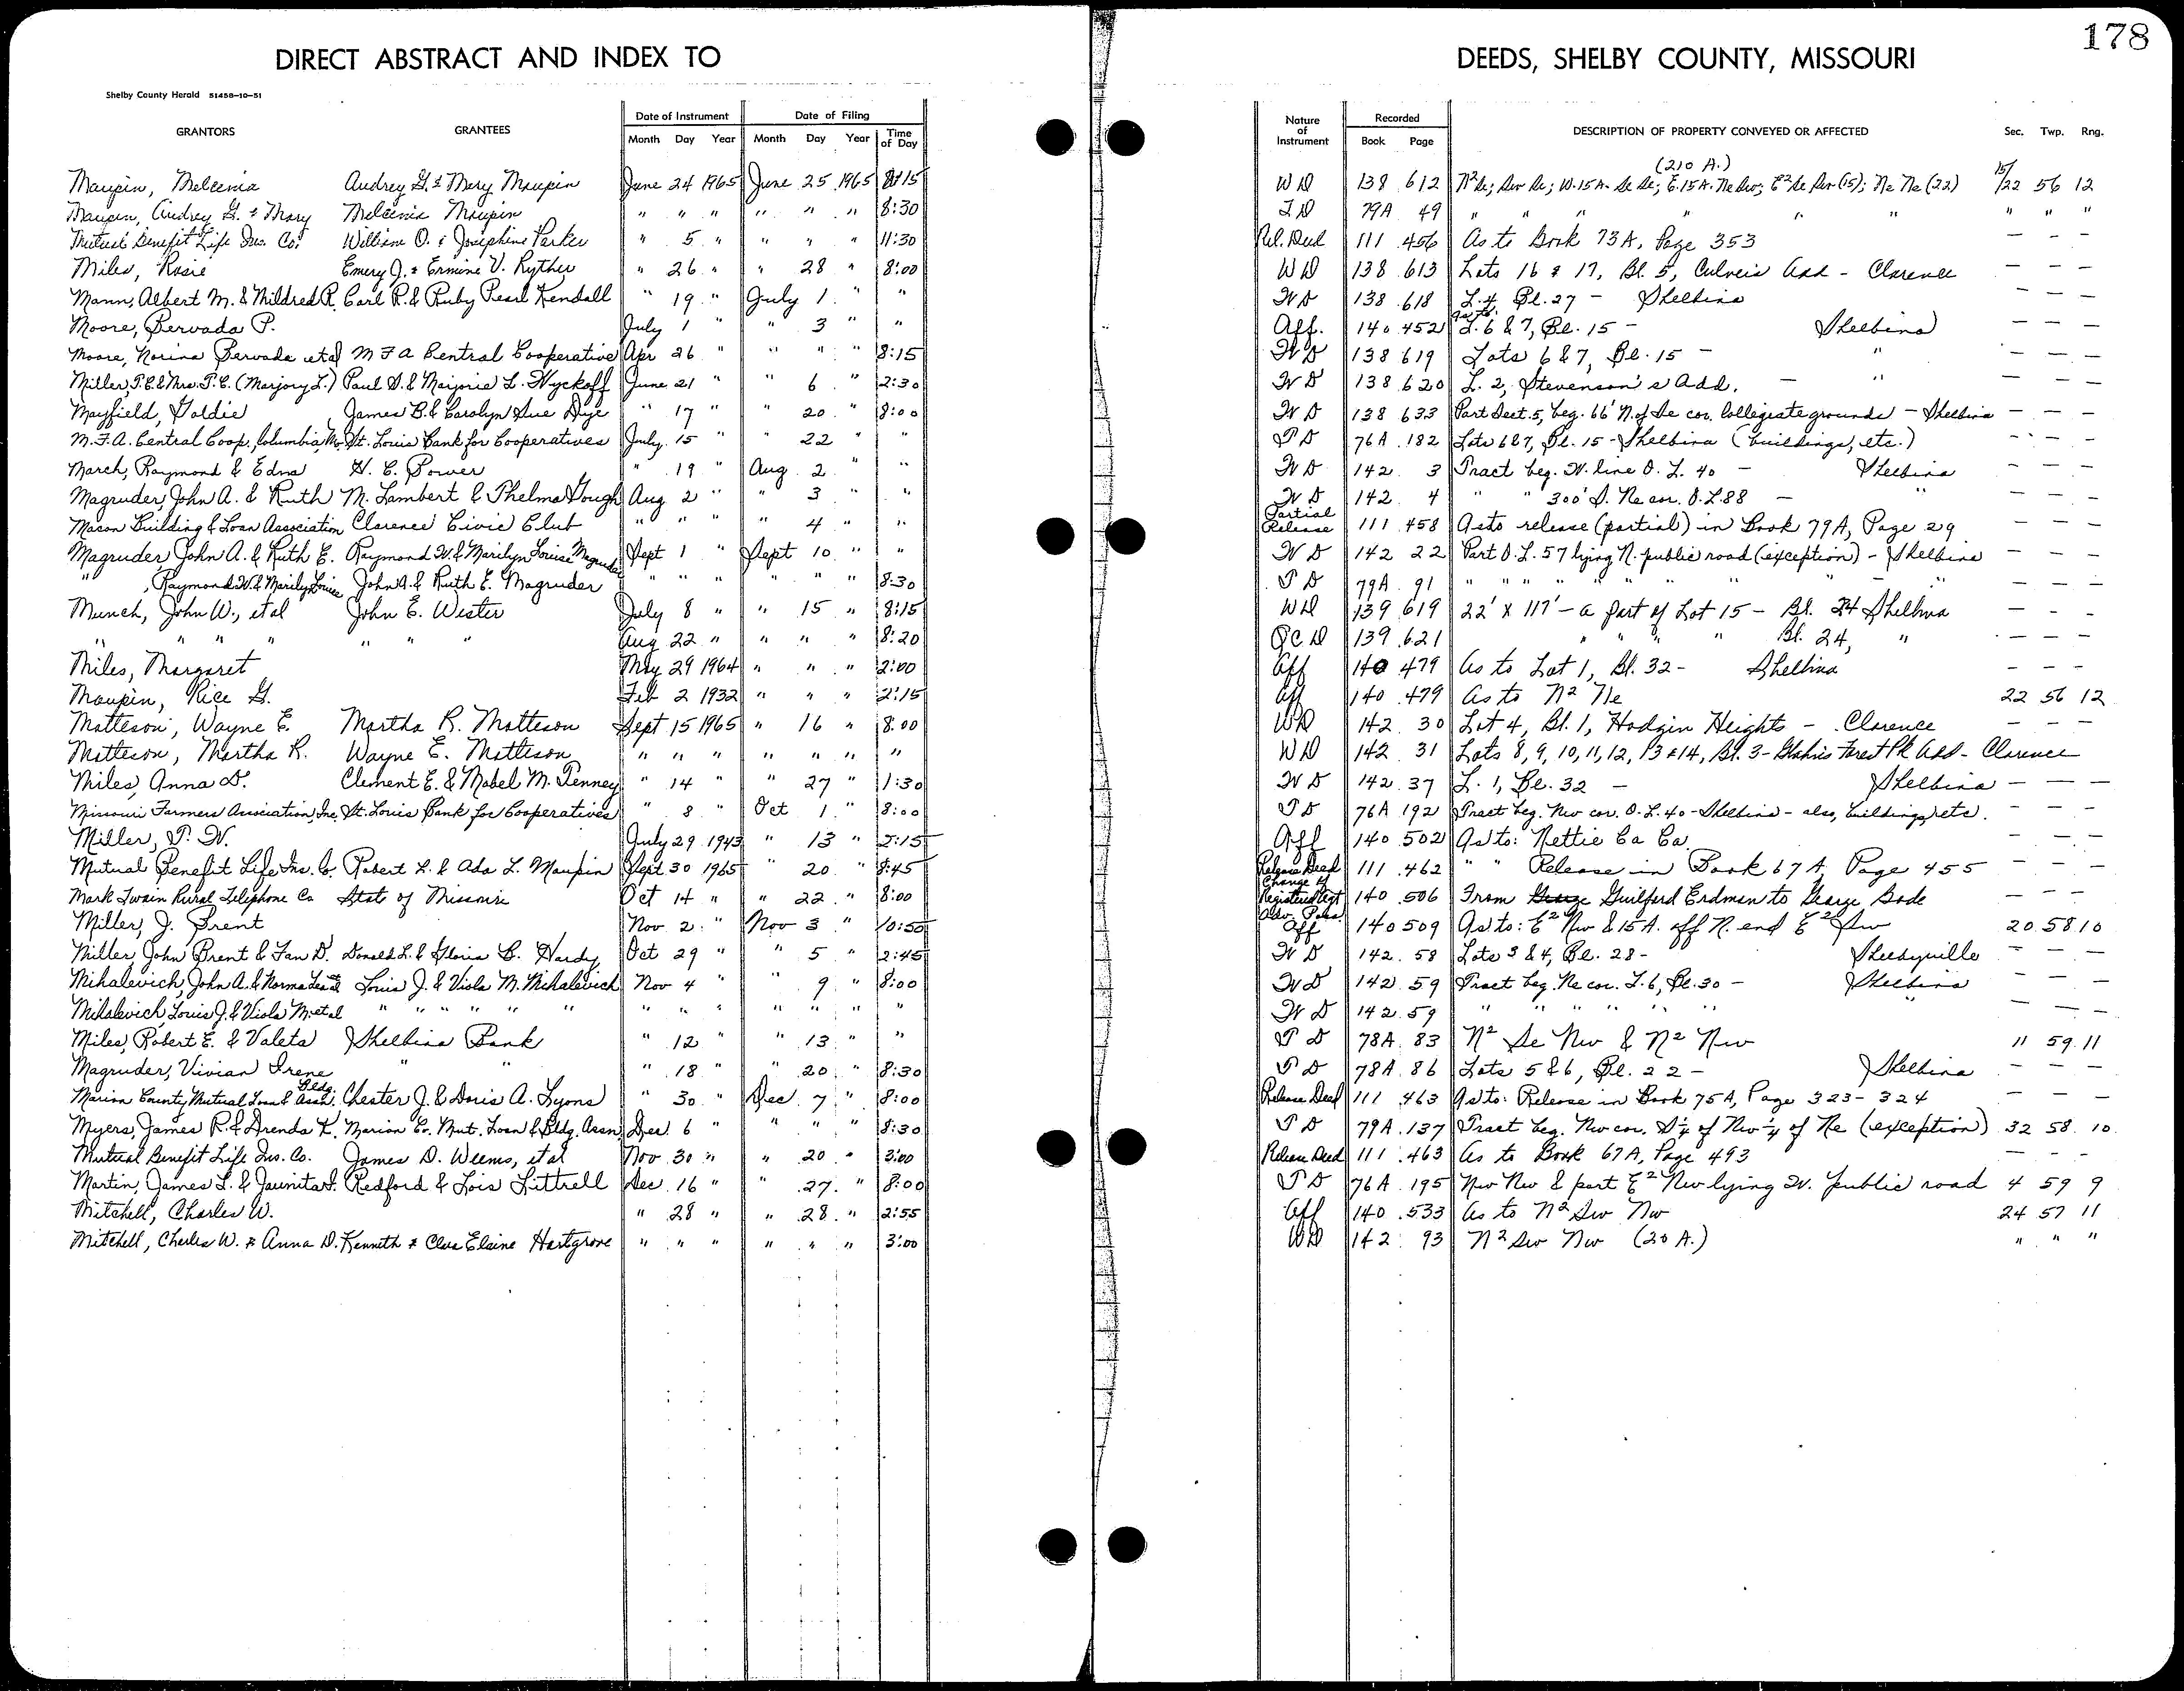 178
DIRECT ABSTRACT AND INDEX TO DEEDS, SHELBY COUNTY, MISSOURI
Shelby County Herald 51458-10-51
GRANTORS GRANTEES Date of Instrument Month Day Year Date of Filing Month Day Year Time of Day Nature of Instrument Recorded Book Page DESCRIPTION OF PROPERTY CONVEYED OR AFFECTED Sec. Twp. Rng.
(210 A.)
Maupin, Melcenia Audrey G. & Mary Maupin June 24 1965 June 25 1965 8:15 WD 138 612 N² Se; Sw Se; W. 15 A. Se Se; E. 15 A. Ne Sw; E² Se Sw (15); Ne Ne (22) 15/22 56 12
Maupin, Audrey G. & Mary Melcenia Maupin " " " " " " 8:30 TD 79A 49 " " " " " " " " "
Mutual Benefit Life Ins. Co. William O. & Josephine Parker " 5 " " " " 11:30 Rel. Deed 111 456 As to Book 73A, Page 353 — — —
Miles, Rosie Emery J. & Ermine V. Ryther " 26 " " 28 " 8:00 WD 138 613 Lots 16 & 17, Bl. 5, Culver's Add - Clarence — — —
Mann, Albert M. & Mildred R. Carl R. & Ruby Pearl Kendall " 19 " July 1 " " WD 138 618 L. 4, Bl. 27 - Shelbina — — —
Moore, Bervada P. July 1 " " 3 " " Aff. 140 452 As to: L. 6 & 7, Bl. 15 - Shelbina — — —
Moore, Norina Bervada etal M F A Central Cooperative Apr 26 " " " " 8:15 WD 138 619 Lots 6 & 7, Bl. 15 - " — — —
Miller, P.C. & Mrs. P.C. (Marjory L.) Paul D. & Marjorie L. Wyckoff June 21 " " 6 " 2:30 WD 138 620 L. 2, Stevenson's Add. — " — — —
Mayfield, Goldie James B. & Carolyn Sue Dye " 17 " " 20 " 8:00 WD 138 633 Part Sect. 5, beg. 66' N. of Se cor. Collegiate grounds - Shelbina — — —
M.F.A. Central Coop., Columbia, Mo. St. Louis Bank for Cooperatives July 15 " " 22 " " TD 76A 182 Lots 6&7, Bl. 15 - Shelbina (buildings, etc.) — — —
March, Raymond & Edna H. C. Power " 19 " Aug. 2 " " WD 142 3 Tract beg. W. line O. L. 40 - Shelbina — — —
Magruder, John A. & Ruth M. Lambert & Thelma Gough Aug 2 " " 3 " " WD 142 4 " " 300' S. Ne cor. O.L. 88 — " — — —
Macon Building & Loan Association Clarence Civic Club " " " " 4 " " Partial Release 111 458 As to release (partial) in Book 79A, Page 29 — — —
Magruder, John A. & Ruth E. Raymond W. & Marilyn Louise Magruder Sept 1 " Sept 10 " " WD 142 22 Part O.L. 57 lying N. public road (exception) - Shelbina — — —
" , Raymond W. & Marilyn Louise John A. & Ruth E. Magruder " " " " " " 8:30 TD 79A 91 " " " " " " " " — — —
Munch, John W., etal John E. Wester July 8 " " 15 " 8:15 WD 139 619 22' x 117' - a part of Lot 15 - Bl. 24 Shelbina — — —
" " " " " " " Aug 22 " " " " 8:20 QCD 139 621 " " " " Bl. 24, " — — —
Miles, Margaret May 29 1964 " " " 2:00 Aff 140 479 As to Lot 1, Bl. 32 - Shelbina — — —
Maupin, Rice G. Feb 2 1932 " " " 2:15 Aff 140 479 As to N² Ne 22 56 12
Matteson, Wayne E. Martha R. Matteson Sept 15 1965 " 16 " 8:00 WD 142 30 Lot 4, Bl. 1, Hodgin Heights - Clarence — — —
Matteson, Martha R. Wayne E. Matteson " " " " " " " WD 142 31 Lots 8, 9, 10, 11, 12, 13 & 14, Bl. 3 - Forest Pk Add - Clarence
Miles, Anna D. Clement E. & Mabel M. Tenney " 14 " 27 " 1:30 WD 142 37 L. 1, Bl. 32 - Shelbina — — —
Missouri Farmers Association, Inc. St. Louis Bank for Cooperatives " 8 " Oct 1 " 8:00 TD 76A 192 Tract beg. Nw cor. O. L. 40 - Shelbina - also, buildings, etc. — — —
Miller, P. W. July 29 1943 " 13 " 2:15 Aff 140 502 As to: Nettie Ca Ca — — —
Mutual Benefit Life Ins. Co. Robert L. & Ada L. Maupin Sept 30 1965 " 20 " 8:45 Release Deed 111 462 " " Release in Book 67A, Page 455 — — —
Mark Twain Rural Telephone Co State of Missouri Oct 14 " " 22 " 8:00 Change of Registered Agt 140 506 From Guilford Erdman to George Bode — — —
Miller, J. Brent Nov 2 " Nov 3 " 10:50 Adv. Poss. Aff 140 509 As to: E² Nw & 15 A. off N. end E² Sw 20 58 10
Miller, John Brent & Fan D. Donald L. & Gloria C. Hardy Oct 29 " " 5 " 2:45 WD 142 58 Lots 3 & 4, Bl. 28 - Shelbyville — — —
Mihalevich, John A. & Norma Lea etal Louis J. & Viola M. Mihalevich Nov 4 " 9 " 8:00 WD 142 59 Tract beg. Ne cor. L. 6, Bl. 30 - Shelbina — — —
Mihalevich, Louis J. & Viola M. etal " " " " " " " " " " " " WD 142 59 " " " " " " — — —
Miles, Robert E. & Valeta Shelbina Bank " 12 " 13 " " TD 78A 83 N² Se Nw & N² Nw 11 59 11
Magruder, Vivian Irene " " " 18 " " 20 " 8:30 TD 78A 86 Lots 5 & 6, Bl. 22 - Shelbina — — —
Marion County Mutual Loan & Bldg. Assn. Chester J. & Doris A. Lyons " 30 " Dec. 7 " 8:00 Release Deed 111 463 As to: Release in Book 75A, Page 323-324 — — —
Myers, James R. & Brenda K. Marion Co. Mut. Loan & Bldg. Assn. Dec. 6 " " " " 8:30 TD 79A 137 Tract beg. Nw cor. S½ of Nw¼ of Ne (exception) 32 58 10
Mutual Benefit Life Ins. Co. James D. Weems, etal Nov 30 " " 20 " 3:00 Release Deed 111 463 As to Book 67A, Page 493 — — —
Martin, James L. & Jaunita I. Redford & Lois Littrell Dec. 16 " " 27 " 8:00 TD 76A 195 Nw Nw & part E² Nw lying W. public road 4 59 9
Mitchell, Charles W. " 28 " " 28 " 2:55 Aff 140 533 As to N² Sw Nw 24 57 11
Mitchell, Charles W. & Anna D. Kenneth & Clara Elaine Hartgrove " " " " " " 3:00 WD 142 93 N² Sw Nw (20 A.) " " "